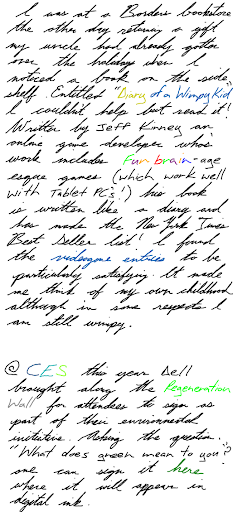 I was at a Borders bookstore
the other day returning a gift
my uncle had already gotten
over the holidays when I
noticed a book on the side
shelf. Entitled "Diary of a Wimpy Kid"
I couldn't help but read it!
Written by Jeff Kinney an
online game developer whose
work includes Fun brain-age
esque games (which work well
with Tablet PCs!) his book
is written like a diary and
has made the New York Times
Best Seller list! I found
the videogame entries to be
particularly satisfying. It made
me think of my own childhood
although in some respects I
am still wimpy.
@ CES this year Dell
brought along the Regeneration
Wall for attendees to sign as
part of their environmental
initiative. Asking the question
"What does green mean to you"?
one can sign it here
where it will appear in
digital ink.